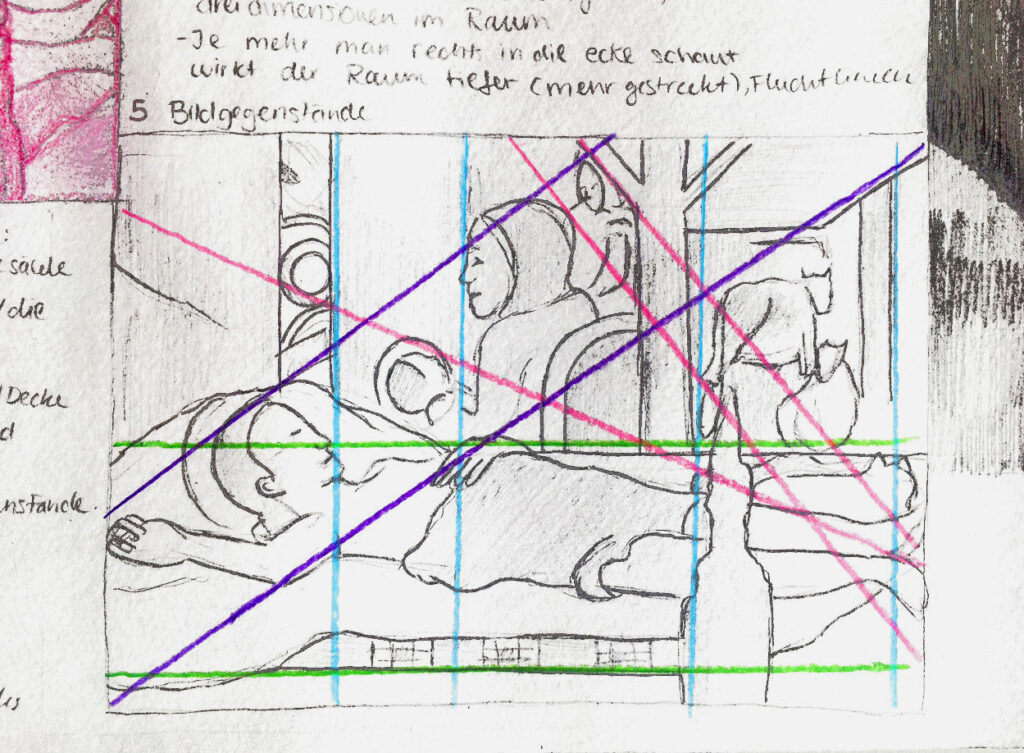 dreidimensionen im Raum
-Je mehr man rechts in die ecke schaut
wirkt der Raum tiefer (mehr gestreckt), Fluchtlinien
5 Bildgegenstände
säule
/die
/Decke
nstände.